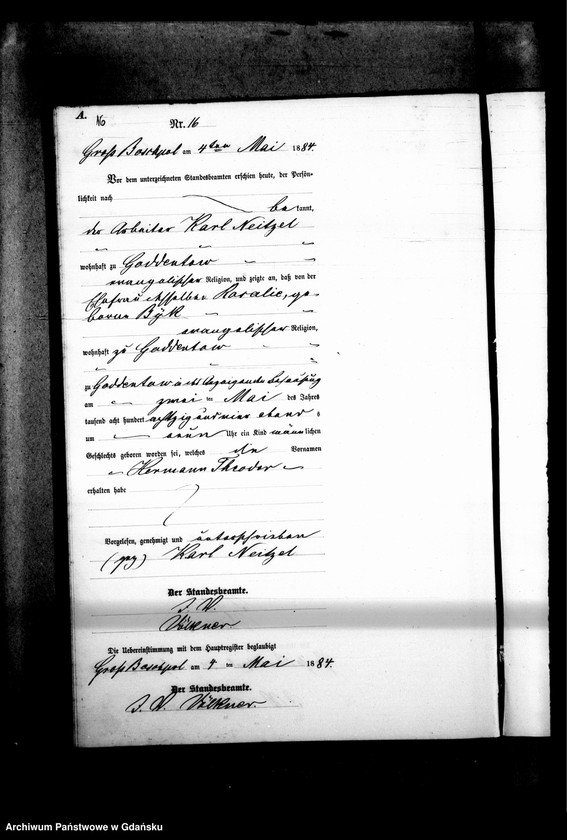 A.
16
Nr. 16
Groß Boschpol am 4ten Mai 1884.
Vor dem unterzeichneten Standesbeamten erschien heute, der Persön-
lichkeit nach
be kannt,
der Arbeiter Karl Neitzel
wohnhaft zu Goddentow
evangelischer Religion, und zeigte an, daß von der
Ehefrau desselben Rosalie, ge-
borene Byk
evangelischer Religion,
wohnhaft zu Goddentow
zu Goddentow in des Behausung
am zwei ten Mai des Jahres
tausend acht hundert achtzig und vier abend s
um neun Uhr ein Kind männlichen
Geschlechts geboren worden sei, welches die Vornamen
Hermann Theodor
erhalten habe
Vorgelesen, genehmigt und unterschrieben
(gez) Karl Neitzel
Der Standesbeamte.
I. V.
Völkner
Die Uebereinstimmung mit dem Hauptregister beglaubigt
Groß Boschpol am 4 ten Mai 1884.
Der Standesbeamte.
I. V. Völkner.
Archiwum Państwowe w Gdańsku